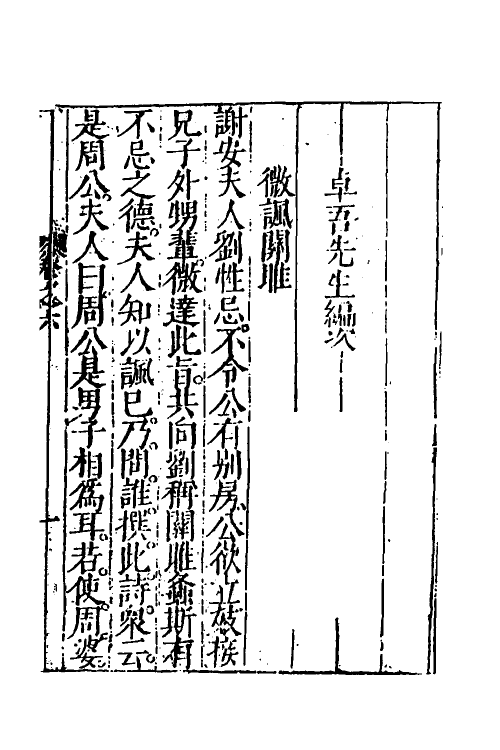 卓吾先生編次
微諷關雎
謝安夫人劉性忌不令公有別房公欲立妓後
兄子外甥輩微達此旨共向劉稱關雎螽斯有
不忌之德夫人知以諷已乃問誰撰此詩衆云
是周公夫人曰周公是男子相爲耳若使周婆
卷之六
一